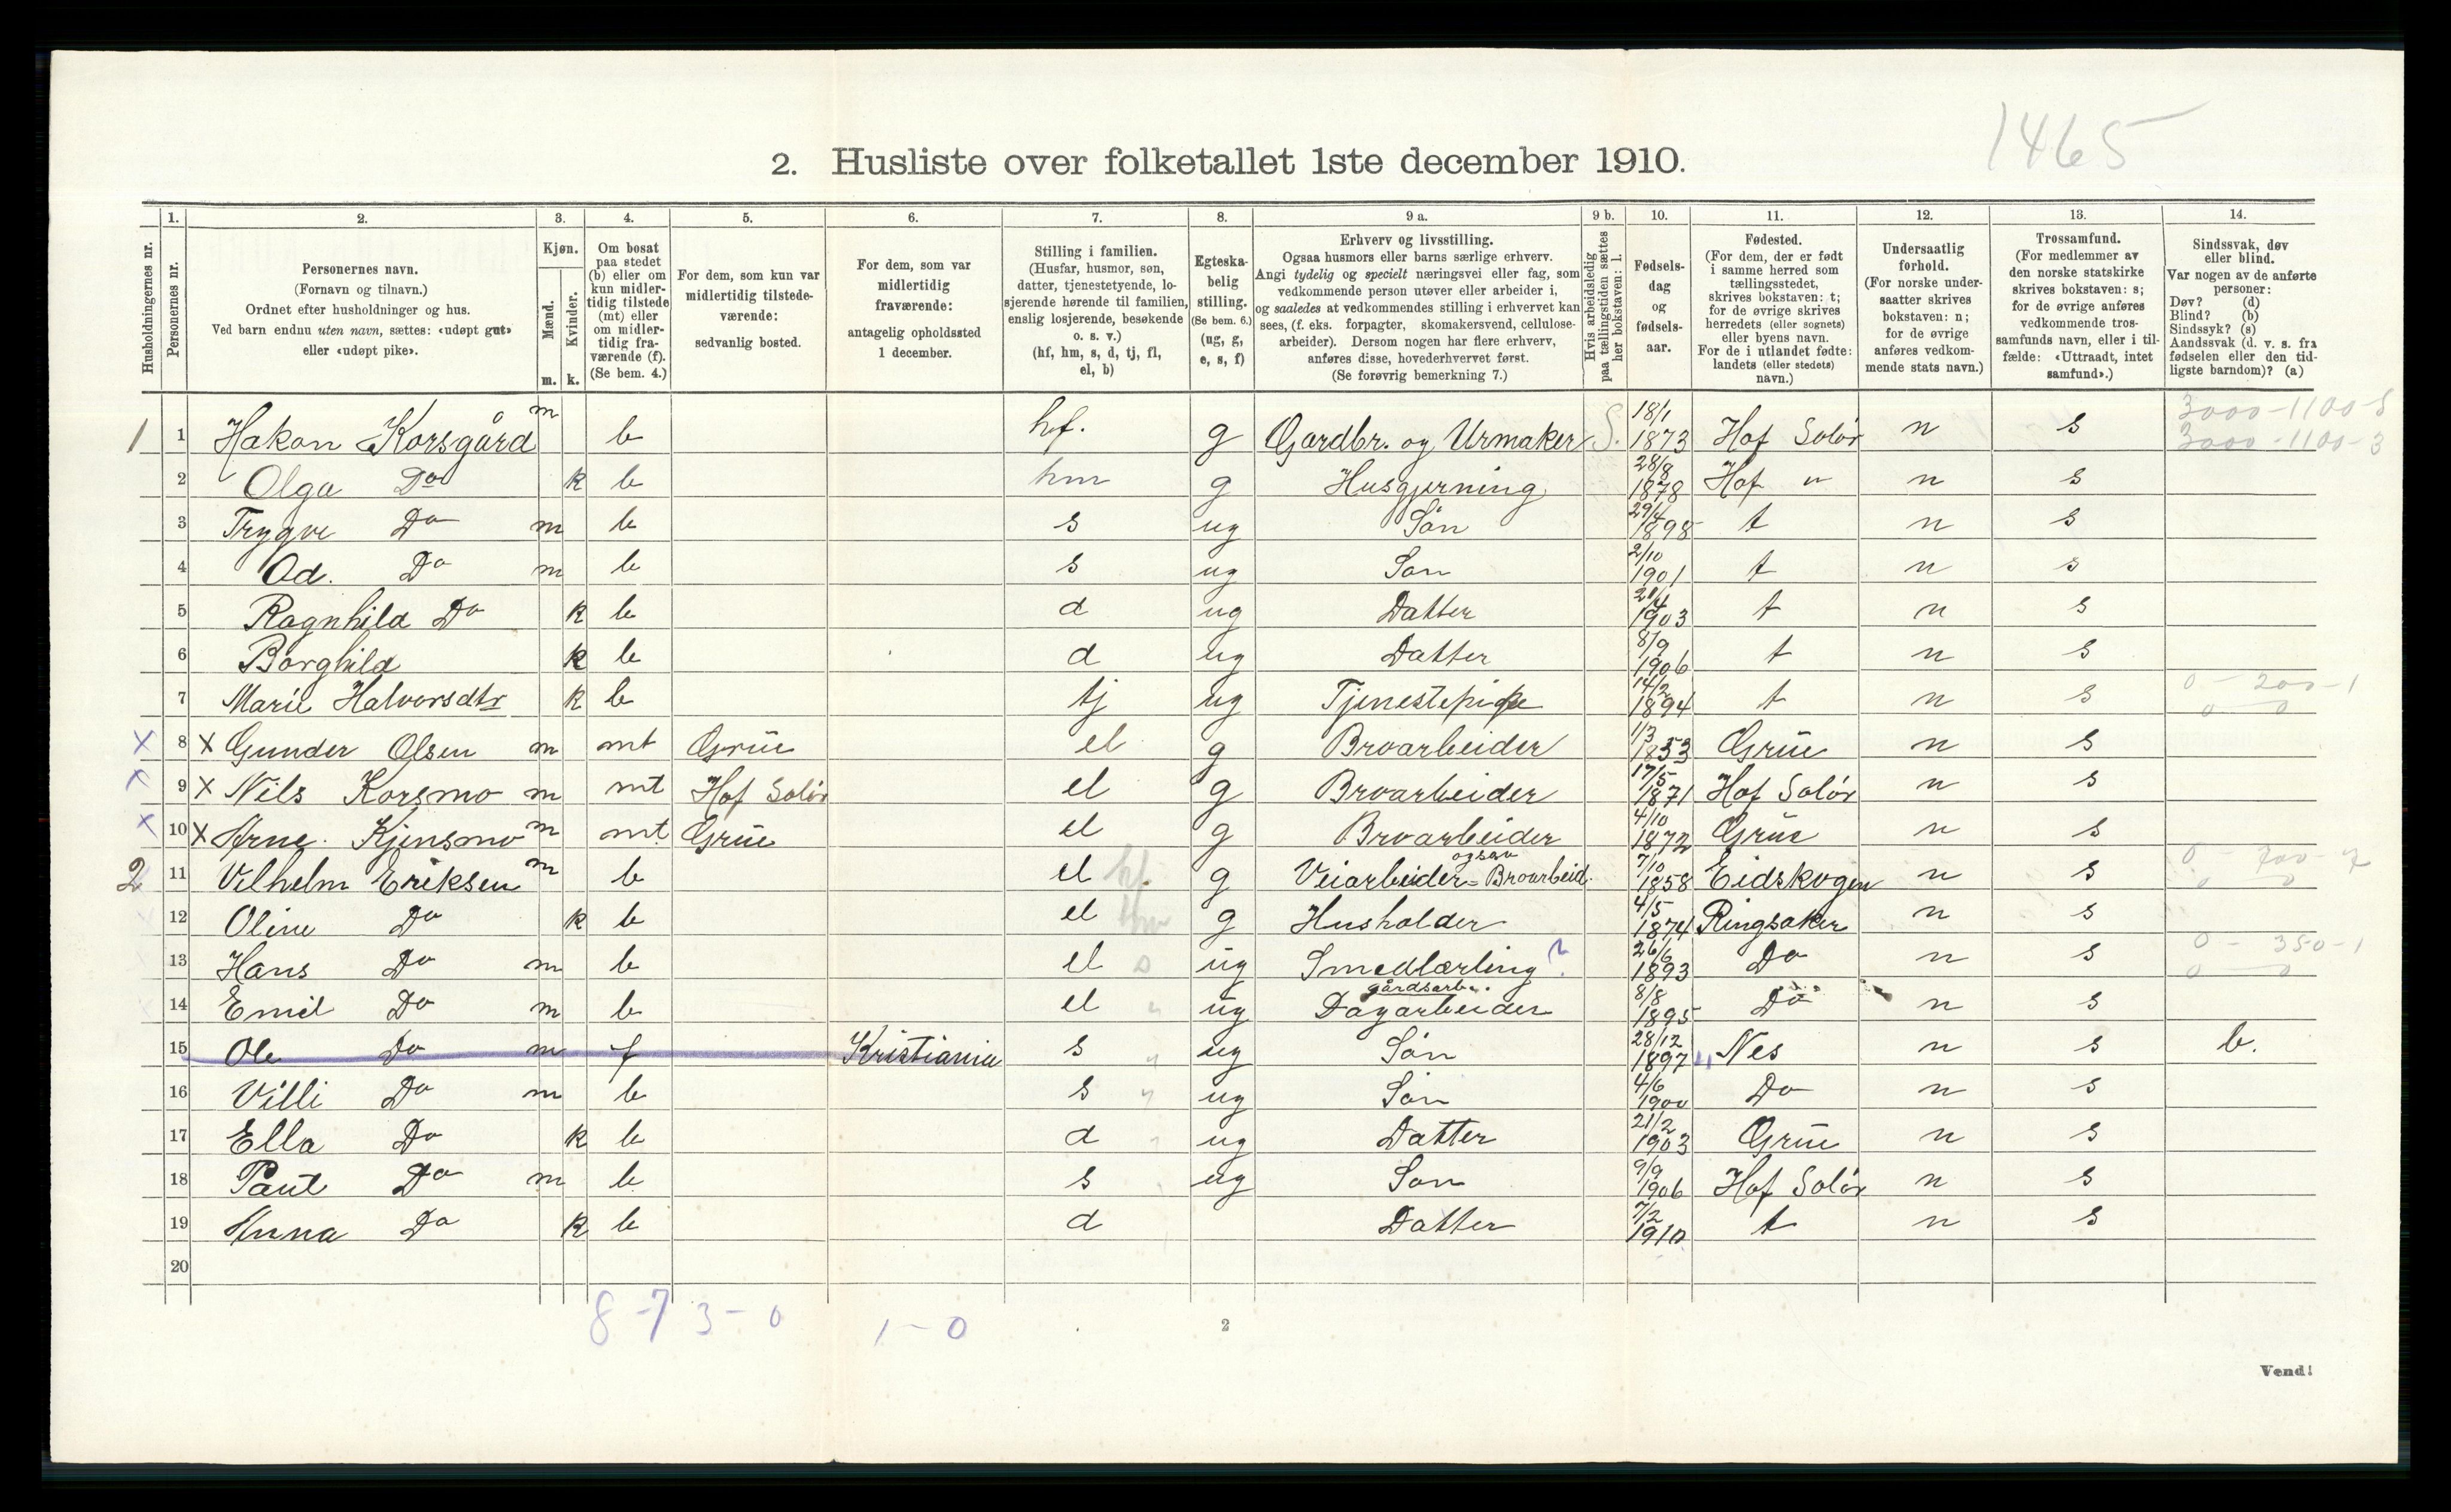 1465
2. Husliste over folketallet 1ste december 1910.
Husholdningernes nr.
1. Personernes nr.
2. Personernes navn. (Fornavn og tilnavn.) Ordnet efter husholdninger og hus. Ved barn endnu uten navn, sættes: «udøpt gut» eller «udøpt pike».
3. Kjøn. Mænd. m. Kvinder. k.
4. Om bosat paa stedet (b) eller om kun midlertidig tilstede (mt) eller om midlertidig fraværende (f). (Se bem. 4.)
5. For dem, som kun var midlertidig tilstedeværende: sedvanlig bosted.
6. For dem, som var midlertidig fraværende: antagelig opholdssted 1 december.
7. Stilling i familien. (Husfar, husmor, søn, datter, tjenestetyende, losjerende hørende til familien, enslig losjerende, besøkende o. s. v.) (hf, hm, s, d, tj, fl, el, b)
8. Egteskabelig stilling. (Se bem. 6.) (ug, g, e, s, f)
9 a. Erhverv og livsstilling. Ogsaa husmors eller barns særlige erhverv. Angi tydelig og specielt næringsvei eller fag, som vedkommende person utøver eller arbeider i, og saaledes at vedkommendes stilling i erhvervet kan sees, (f. eks. forpagter, skomakersvend, cellulosearbeider). Dersom nogen har flere erhverv, anføres disse, hovederhvervet først. (Se forøvrig bemerkning 7.)
9 b. Hvis arbeidsledig paa tællingstiden sættes her bokstaven: l.
10. Fødselsdag og fødselsaar.
11. Fødested. (For dem, der er født i samme herred som tællingsstedet, skrives bokstaven: t; for de øvrige skrives herredets (eller sognets) eller byens navn. For de i utlandet fødte: landets (eller stedets) navn.)
12. Undersaatlig forhold. (For norske undersaatter skrives bokstaven: n; for de øvrige anføres vedkommende stats navn.)
13. Trossamfund. (For medlemmer av den norske statskirke skrives bokstaven: s; for de øvrige anføres vedkommende trossamfunds navn, eller i tilfælde: «Uttraadt, intet samfund».)
14. Sindssvak, døv eller blind. Var nogen av de anførte personer: Døv? (d) Blind? (b) Sindssyk? (s) Aandssvak (d. v. s. fra fødselen eller den tidligste barndom)? (a)
1 1 Hakon Korsgård m b hf. g Gardbr. og Urmaker S. 18/1 1873 Hof Solør n s 3000-1100-5 3000-1100-3
2 Olga Do k b hm g Husgjerning 28/8 1878 Hof " n s
3 Trygve Do m b s ug Søn 29/4 1898 t n s
4 Od. Do m b s ug Søn 2/10 1901 t n s
5 Ragnhild Do k b d ug Datter 1903 t n s
6 Borghild k b d ug Datter 8/9 1906 t n s
7 Marie Halvorsdtr k b tj ug Tjenestepige 14/2 1894 t n s 0 - 200 - 1 0 0
x 8 x Gunder Olsen m mt Grue el g Broarbeider 1/3 1853 Grue n s
x 9 x Nils Korsmo m mt Hof Solør el g Broarbeider 17/5 1871 Hof Solør n s
x 10 x Arne Kjensmo m mt Grue el g Broarbeider 4/10 1872 Grue n s
2 11 Vilhelm Eriksen m b el hf. g Veiarbeider = ogsaa Broarbeid. 7/10 1858 Eidskogen n s 0 - 700 - 7 0 0
12 Oline Do k b el hm g Husholder 4/5 1874 Ringsaker n s
13 Hans Do m b el s ug Smedlærling ? 26/6 1893 Do n s 0 - 350 - 1 0 0
14 Emil Do m b el " ug Dagarbeider gårdsarb. 8/8 1895 Do n s
15 Ole Do m f Kristiania s " ug Søn 28/12 1897 Nes n s b.
16 Villi Do m b s " ug Søn 4/6 1900 Do n s
17 Ella Do k b d ug Datter 21/2 1903 Grue n s
18 Paul Do m b s ug Søn 9/9 1906 Hof Solør n s
19 Anna Do k b d Datter 7/2 1910 t n s
20
8 - 7 3 - 0 1 - 0
2
Vend!